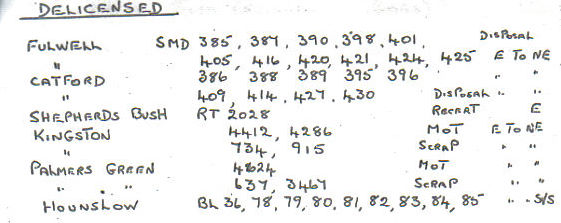 DELICENSED
FULWELL SMD 385, 387, 390, 398, 401, DISPOSAL
405, 416, 420, 421, 424, 425 E TO NE
CATFORD 386 388 389 395 396 " "
" 409, 414, 427, 430 DISPOSAL " "
SHEPHERDS BUSH RT 2028 RECERT E
KINGSTON 4412, 4286 MOT E TO NE
" 734, 915 SCRAP " "
PALMERS GREEN 4624 MOT "
" " 637, 3467 SCRAP " "
HOUNSLOW BL 36, 78, 79, 80, 81, 82, 83, 84, 85 " " S/S